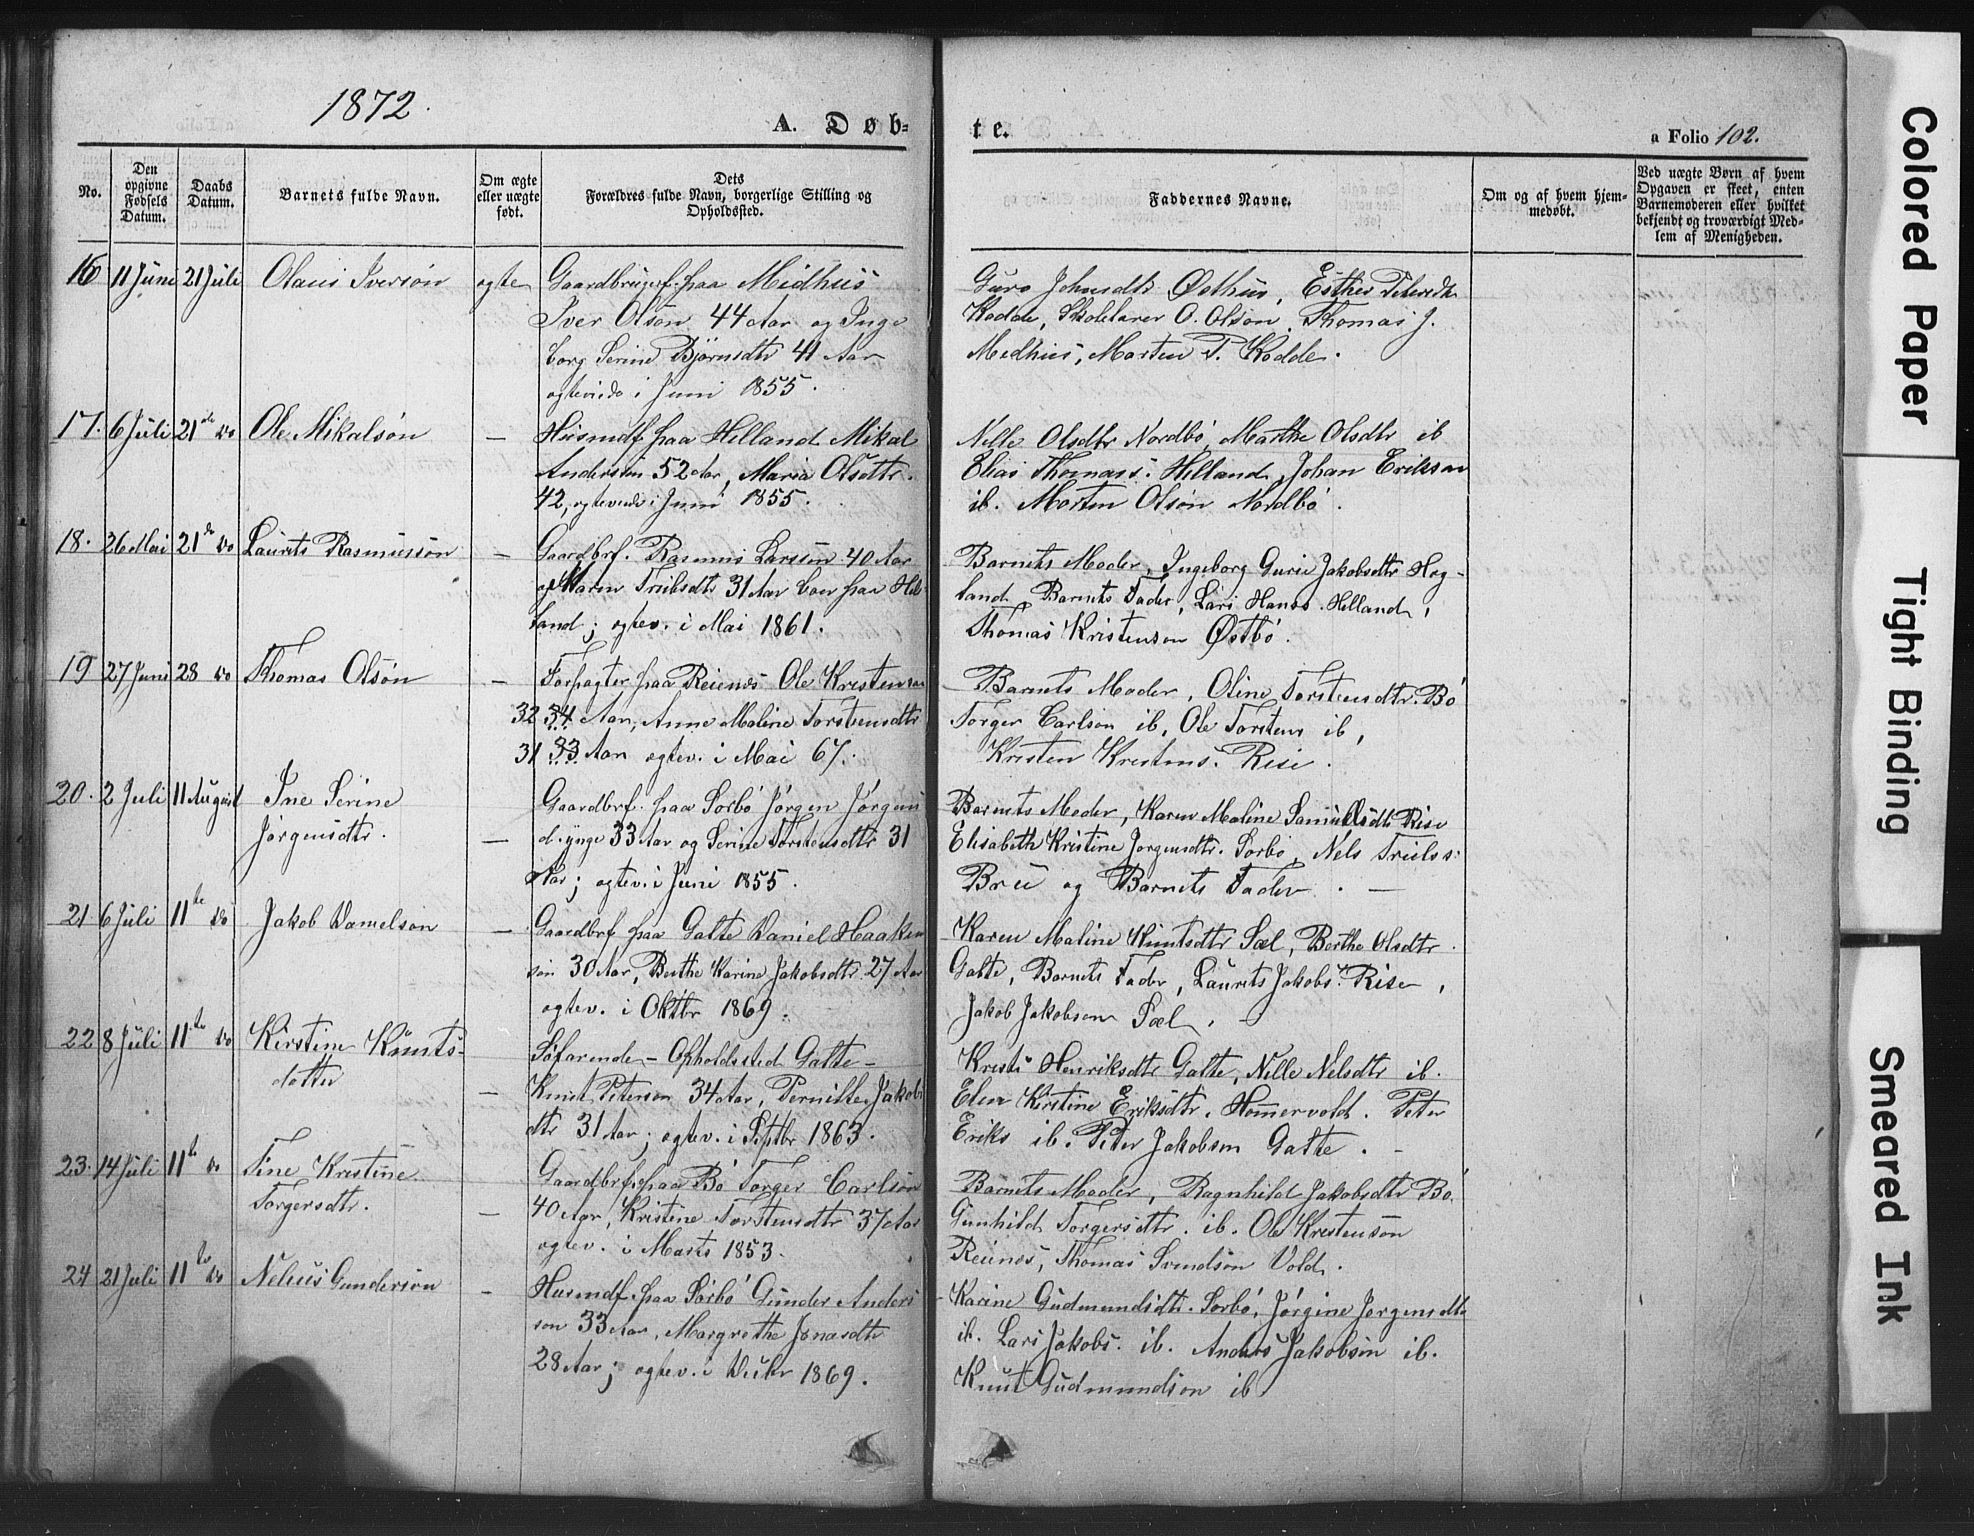 1872.
A. Døb-
te.
a Folio 102.
No.
Den opgivne Fødsels Datum.
Daabs Datum.
Barnets fulde Navn.
Om ægte eller uægte født.
Dets Forældres fulde Navn, borgerlige Stilling og Opholdssted.
Faddernes Navne.
Om og af hvem hjemmedøbt.
Ved uægte Børn af hvem Opgaven er skeet, enten Barnemoderen eller hvilket bekjendt og troværdigt Medlem af Menigheden.
16 11 Juni 21 Juli Olaus Iversøn ægte Gaardbruger paa Midhus
Iver Olsøn 44 Aar og Inge
borg Serine Bjørnsdtr 41 Aar
ægteviede i Juni 1855.
Guro Johnsdtr Østhus, Esther Petersdtr
Kodde, Skolelærer O. Olsøn, Thomas J.
Medhus, Morten P. Kodde.
17. 6 Juli 21de do Ole Mikalsøn — Husmd paa Helland Mikal
Andersøn 52 Aar, Maria Olsdtr.
42, ægteviede i Juni 1855.
Nille Olsdtr Nordbø, Marthe Olsdtr ib
Elias Thomass. Helland, Johan Eriksøn
ib. Morten Olsøn Nordbø.
18. 26 Mai 21de do Laurits Rasmussøn — Gaardbrf. Rasmus Larssøn 40 Aar
og Maren Truelsdtr 31 Aar boer paa Hel-
land; ægtev. i Mai 1861.
Barnets Moder, Ingeborg Gurie Jakobsdtr Hog-
land, Barnets Fader, Lars Hans. Helland,
Thomas Kristenson Østbø.
19 27 Juni 28 do Thomas Olsøn — Forpagter paa Reienes Ole Kristensøn
32 34 Aar, Anne Maline Torstensdtr
31 33 Aar ægtev. i Mai 67.
Barnets Moder, Oline Torstensdtr. Bø
Torger Carlsøn ib, Ole Torstens ib,
Kristen Kristens. Rise.
20. 2 Juli 11 August Ine Serine
Jørgensdtr. — Gaardbrf. paa Sørbø Jørgen Jørgens
d. yngre 33 Aar og Serine Torstensdtr 31
Aar; ægtev. i Juni 1855.
Barnets Moder, Karen Maline Samuelsdtr Rise
Elisabeth Kristine Jørgensdtr. Sørbø, Nels Truels:
Bru og Barnets Fader. —
21 6 Juli 11te do Jakob Danielsøn — Gaardbrf paa Galte Daniel Haaken
søn 30 Aar, Berthe Karine Jakobsdtr 27 Aar
ægtev. i Oktbr 1869.
Karen Maline Knutsdtr Sæl, Berthe Olsdtr
Galte, Barnets Fader, Laurits Jakobs. Rise,
Jakob Jakobsen Sæl.
22 8 Juli 11te do Kirstine Knuts-
datter — Søfarende - Opholdssted Galte -
Knut Peterson 34 Aar, Pernille Jakobs
dtr 31 Aar; ægtev. i Septbr 1863.
Kristi Henriksdtr Galte, Nille Nelsdtr ib.
Elen Kirstine Eriksdtr. Hommervold. Peter
Eriks ib. Peter Jakobsen Galte. -
23. 14 Juli 11te do Tine Kristine
Torgersdtr. — Gaardbrf. paa Bø Torger Carlsøn
40 Aar, Kristine Torstensdtr 37 Aar
ægtev. i Marts 1853.
Barnets Moder, Ragnhild Jakobsdtr Bø.
Gunhild Torgersdtr. ib. Ole Kristensøn
Reienes, Thomas Svendsøn Vold.
24 21 Juli 11te do Nelius Gundersøn - Husmd. paa Sørbø Gunder Anders
søn 33 Aar, Margrethe Jonasdtr
28 Aar; ægtev. i Dcbr 1869.
Karine Gudmundsdtr. Sørbø, Jørgine Jørgensdtr
ib. Lars Jakobs. ib. Anders Jakobsen ib.
Knut Gudmundsøn ib
Colored Paper
Tight Binding
Smeared Ink